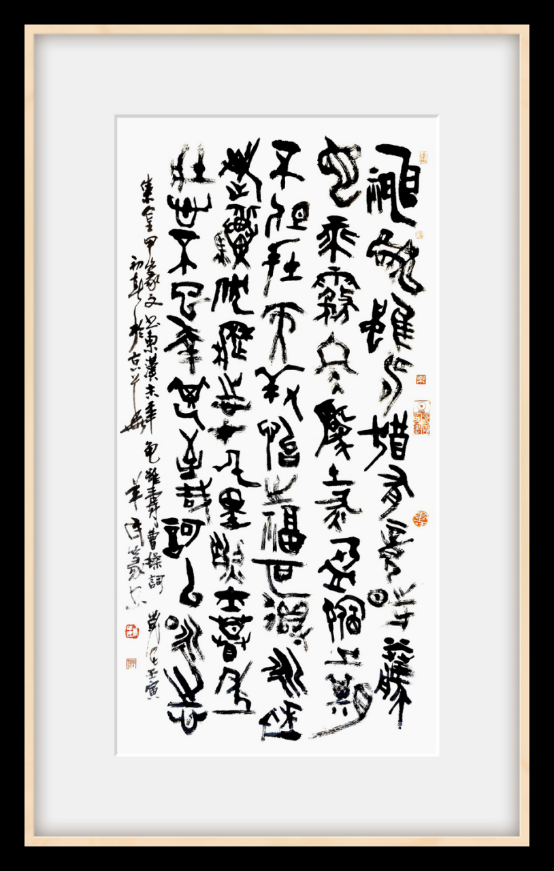 神龜雖壽猶有竟時騰
蛇乘霧終為土灰盈縮之期
不但在天養怡之福可得永年
老驥伏櫪志在千里烈士暮年
壯心不已幸甚至哉歌以永志
集金甲篆文書東漢末年龜雖壽曹操詞歲次壬寅
初春於京